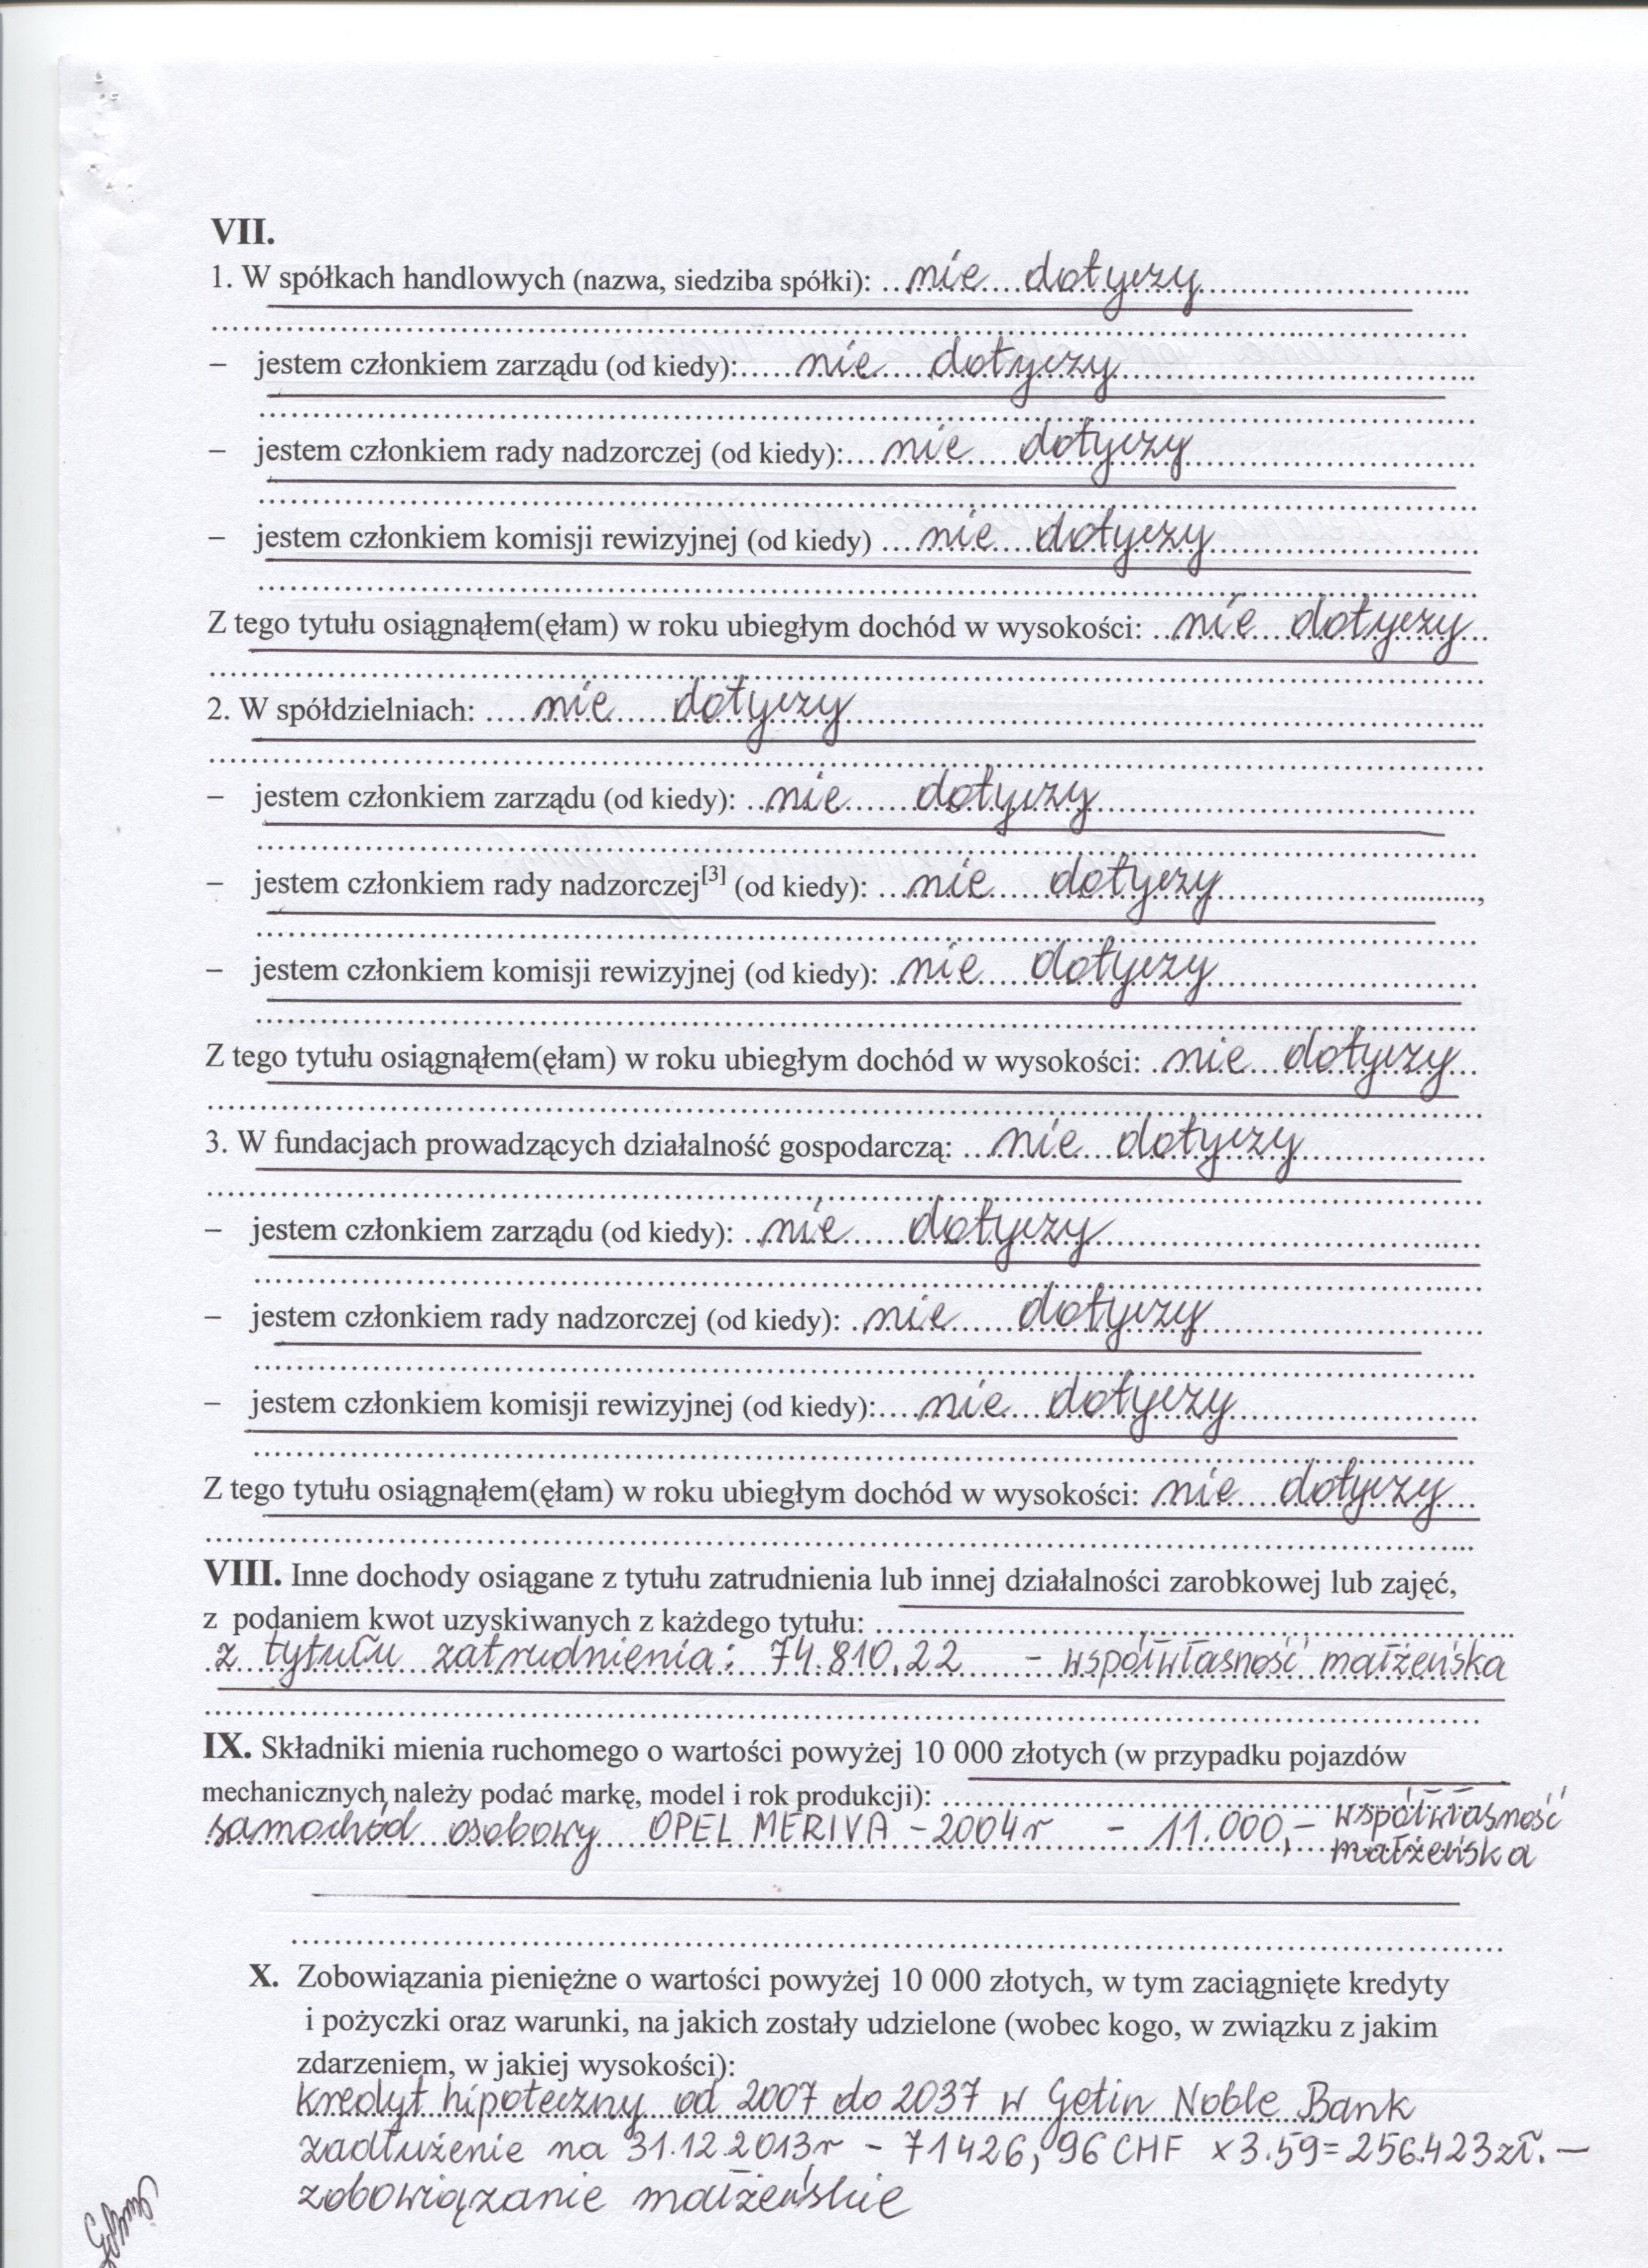 VII.
1. W spółkach handlowych (nazwa, siedziba spółki): nie dotyczy
– jestem członkiem zarządu (od kiedy): nie dotyczy
– jestem członkiem rady nadzorczej (od kiedy): nie dotyczy
– jestem członkiem komisji rewizyjnej (od kiedy) nie dotyczy
Z tego tytułu osiągnąłem(ęłam) w roku ubiegłym dochód w wysokości: nie dotyczy
2. W spółdzielniach: nie dotyczy
– jestem członkiem zarządu (od kiedy): nie dotyczy
– jestem członkiem rady nadzorczej[3] (od kiedy): nie dotyczy,
– jestem członkiem komisji rewizyjnej (od kiedy): nie dotyczy
Z tego tytułu osiągnąłem(ęłam) w roku ubiegłym dochód w wysokości: nie dotyczy
3. W fundacjach prowadzących działalność gospodarczą: nie dotyczy
– jestem członkiem zarządu (od kiedy): nie dotyczy
– jestem członkiem rady nadzorczej (od kiedy): nie dotyczy
– jestem członkiem komisji rewizyjnej (od kiedy): nie dotyczy
Z tego tytułu osiągnąłem(ęłam) w roku ubiegłym dochód w wysokości: nie dotyczy
VIII. Inne dochody osiągane z tytułu zatrudnienia lub innej działalności zarobkowej lub zajęć,
z podaniem kwot uzyskiwanych z każdego tytułu:
z tytułu zatrudnienia: 74.810,22 - współwłasność małżeńska
IX. Składniki mienia ruchomego o wartości powyżej 10 000 złotych (w przypadku pojazdów
mechanicznych należy podać markę, model i rok produkcji):
samochód osobowy OPEL MERIVA - 2004 r - 11.000,- współwłasność
małżeńska
X. Zobowiązania pieniężne o wartości powyżej 10 000 złotych, w tym zaciągnięte kredyty
i pożyczki oraz warunki, na jakich zostały udzielone (wobec kogo, w związku z jakim
zdarzeniem, w jakiej wysokości):
kredyt hipoteczny od 2007 do 2037 w Getin Noble Bank
zadłużenie na 31.12.2013r - 71426,96 CHF x 3.59 = 256.423 zł. —
zobowiązanie małżeńskie